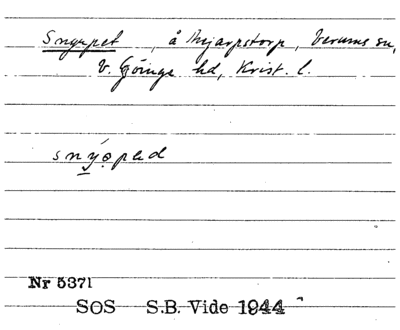 Snyupet, å Mjarpstorp, Verums sn,
V. Göinge hd, Krist. l.
Nr 5371
SOS S.B. Vide 1944